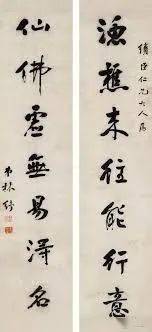 漁樵来往能行意
臣仁兄大人屬
仙佛虛無易得名
弟林紓